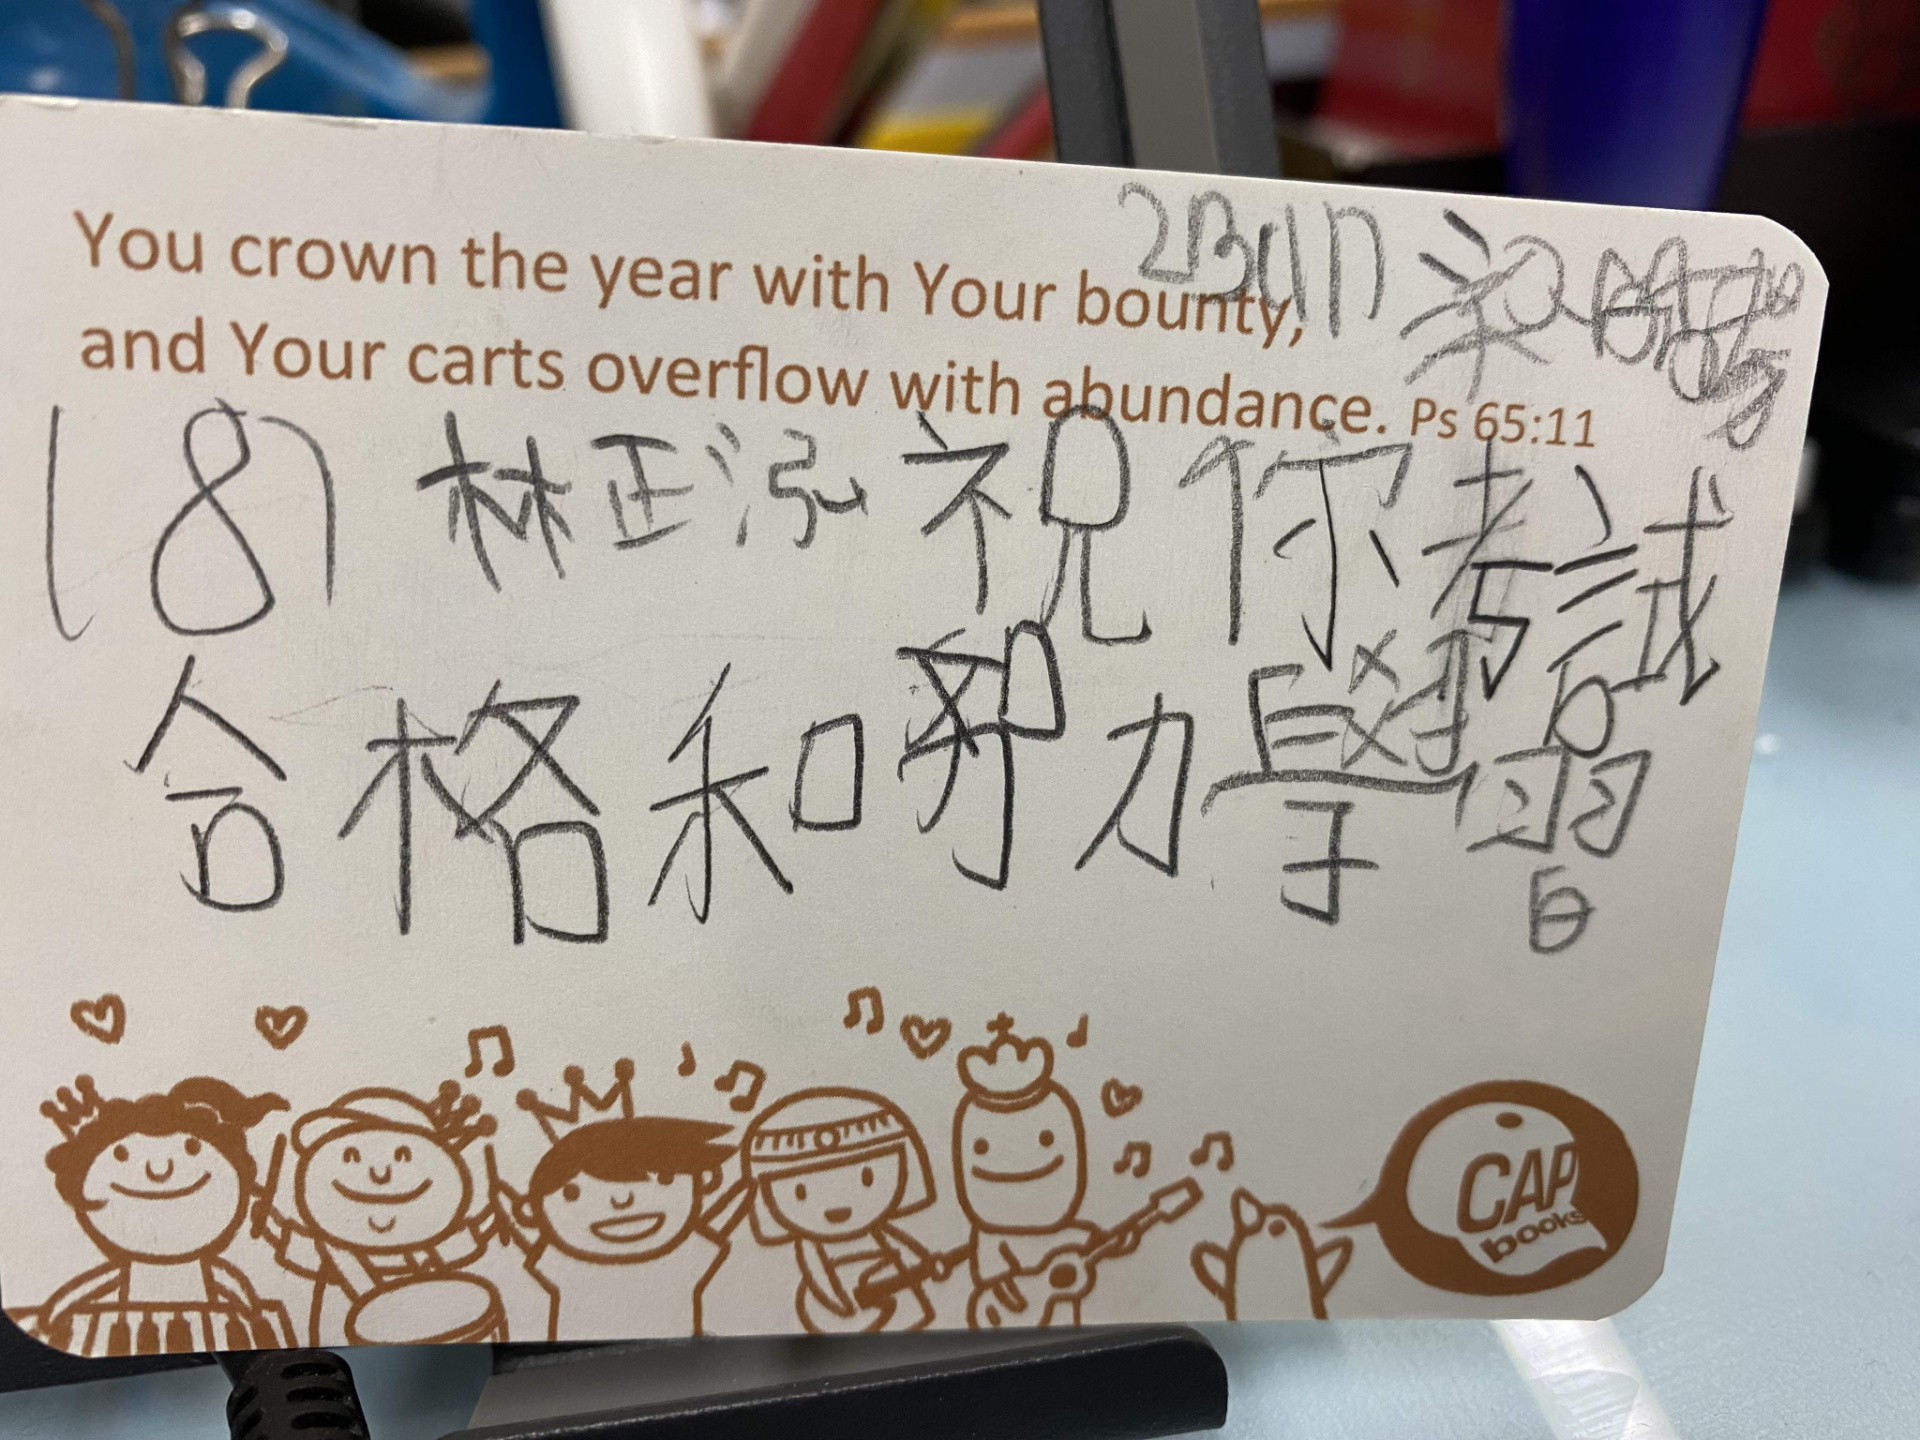 You crown the year with Your bounty,
and Your carts overflow with abundance. Ps 65:11
(8) 林正泓 祝你考試
合格和努力學習
CAP
books